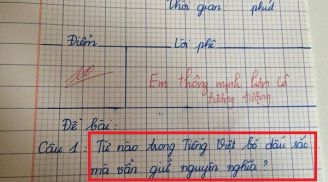 Thời gian: phút
Điểm Lời phê
10
Em thông minh hơn cô
tưởng tượng
Đề bài:
Câu 1: Từ nào trong Tiếng Việt bỏ dấu sắc
mà vẫn giữ nguyên nghĩa?